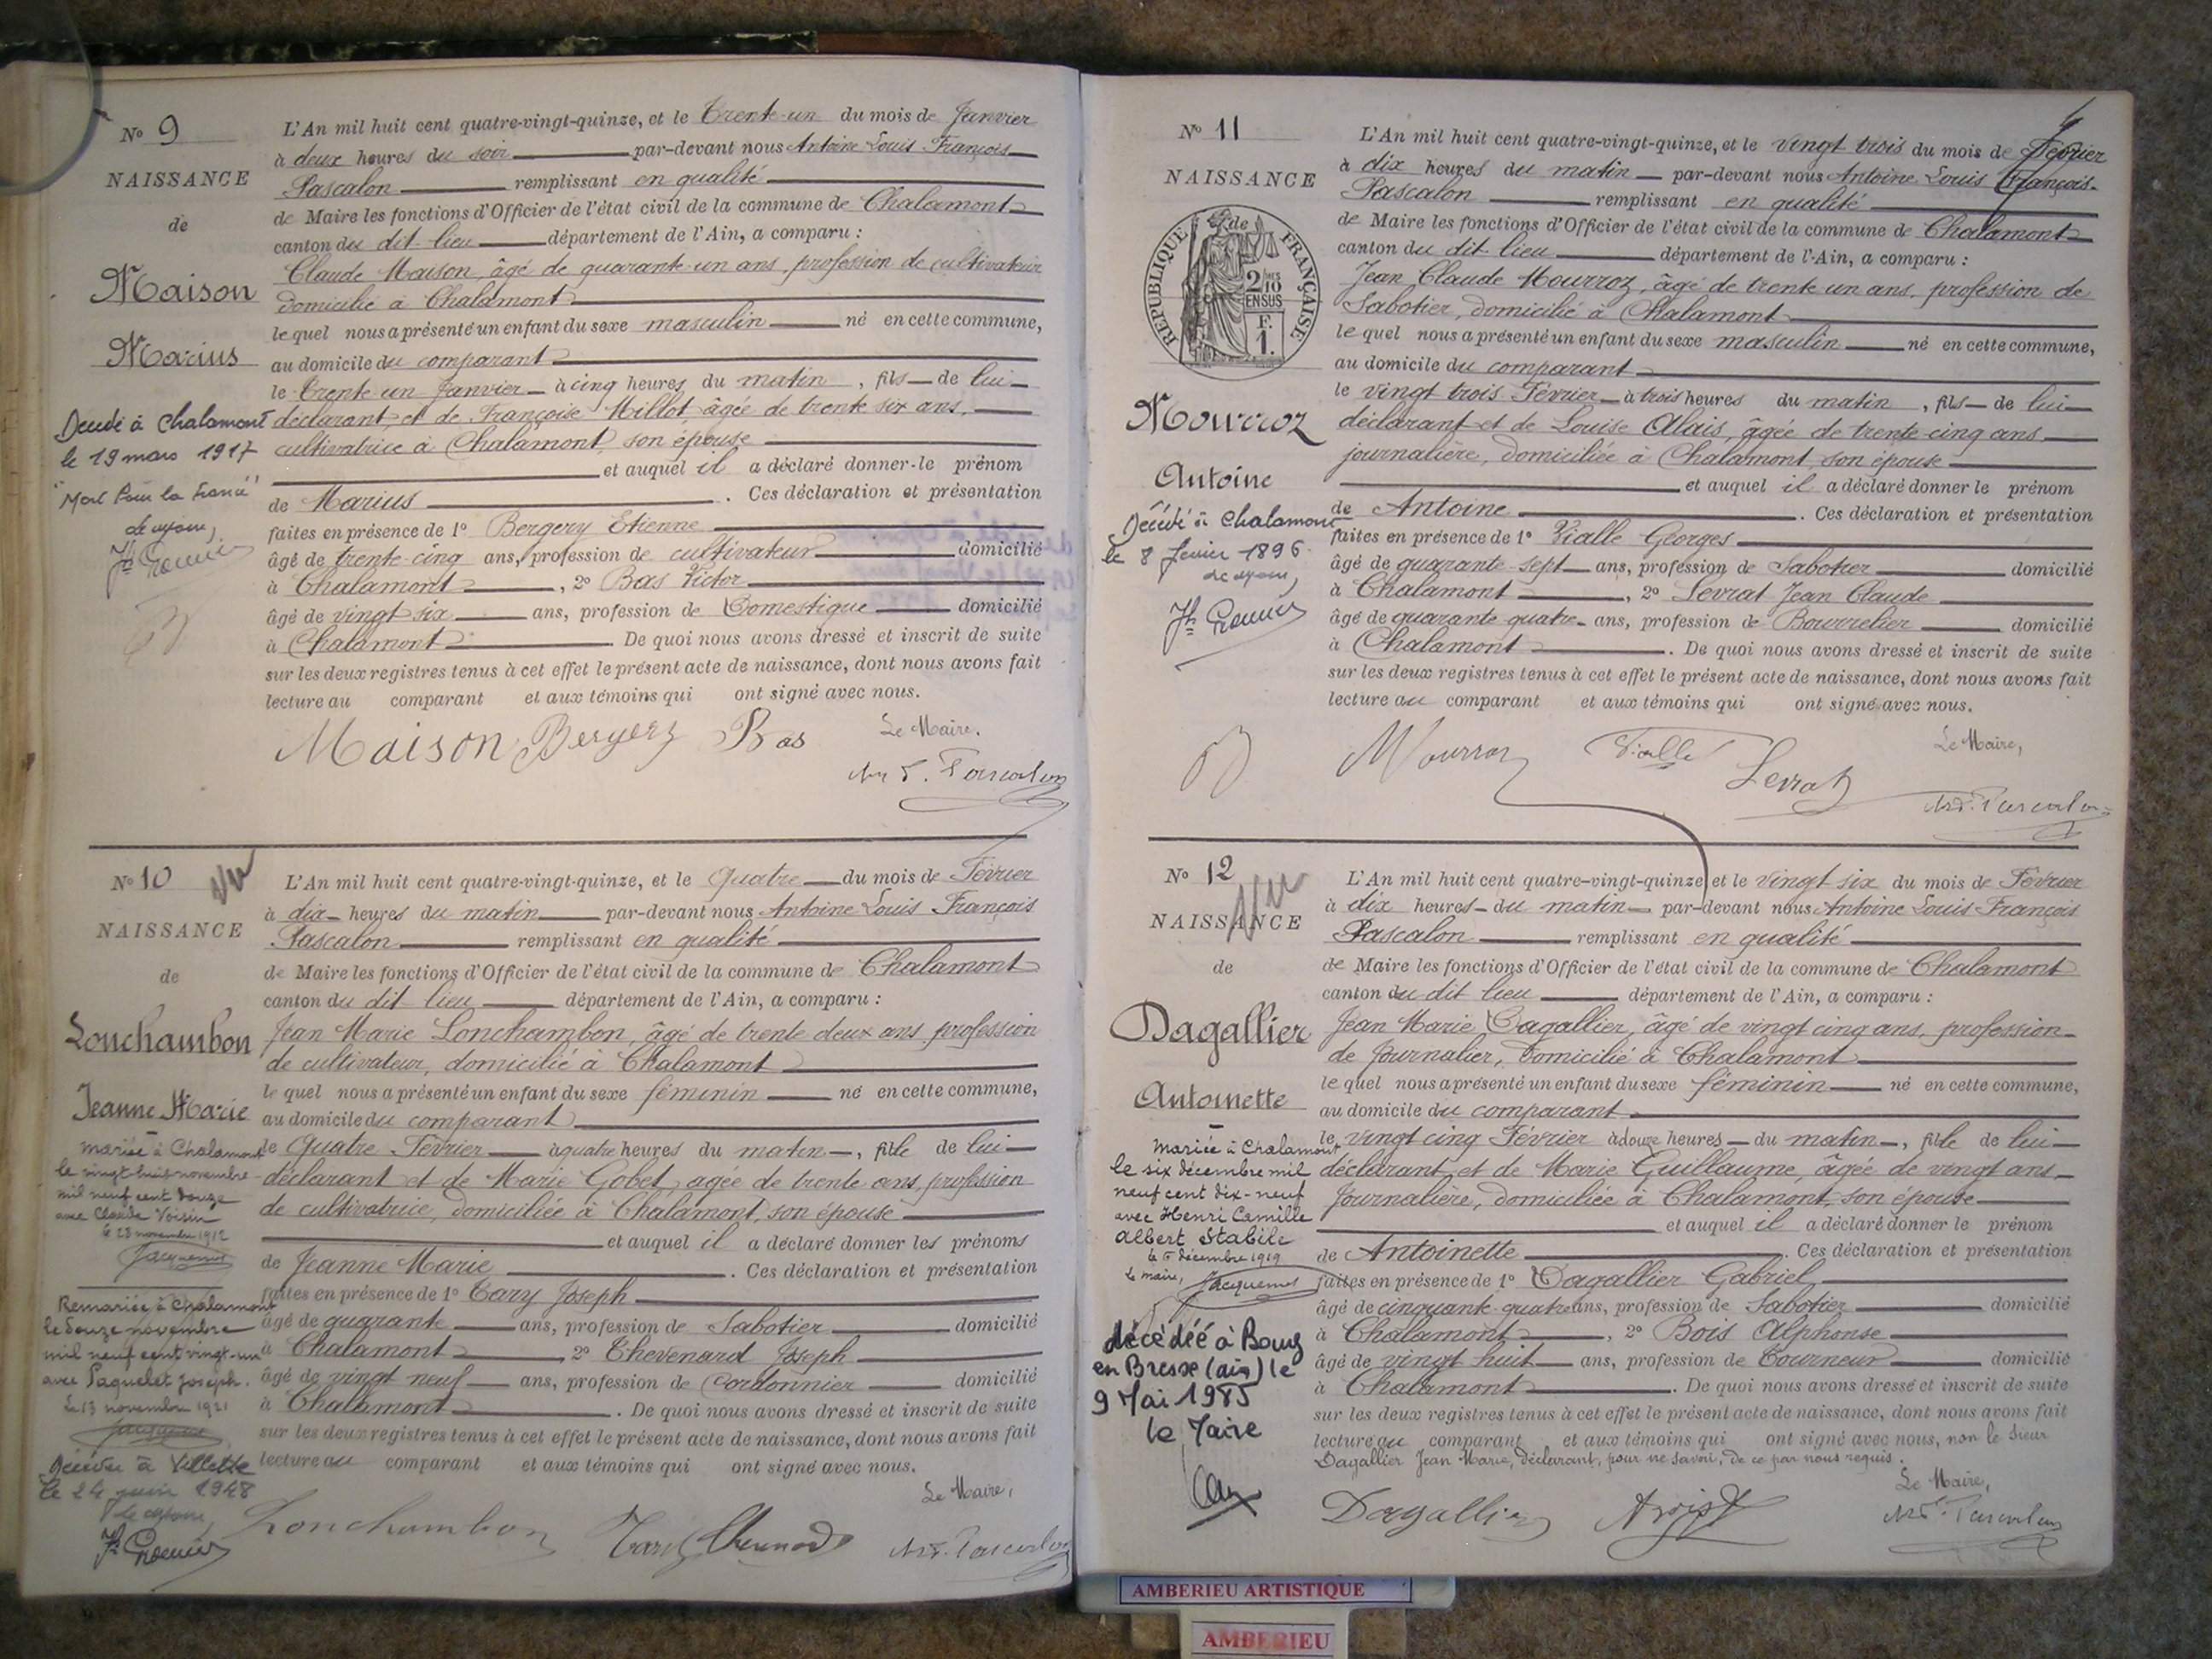 Nº 9
NAISSANCE
de
Maison
Marius
Décédé à Chalamont
le 19 mars 1917
"Mort Pour la France"
L'An mil huit cent quatre-vingt-quinze, et le trente-un du mois de Janvier
à deux heures du soir par-devant nous Antoine Louis François
Pascalon remplissant en qualité
de Maire les fonctions d'Officier de l'état civil de la commune de Chalamont
canton du dit lieu département de l'Ain, a comparu :
Claude Maison, âgé de quarante-un ans, profession de cultivateur
domicilié à Chalamont
le quel nous a présenté un enfant du sexe masculin né en cette commune,
au domicile du comparant
le trente un Janvier à cinq heures du matin, fils de lui
déclarant, et de Françoise Millot, âgée de trente six ans,
cultivatrice à Chalamont, son épouse
et auquel il a déclaré donner le prénom
de Marius. Ces déclaration et présentation
faites en présence de 1º Bergery Etienne
âgé de trente-cinq ans, profession de cultivateur domicilié
à Chalamont, 2º Bas Victor
âgé de vingt six ans, profession de Domestique domicilié
à Chalamont. De quoi nous avons dressé et inscrit de suite
sur les deux registres tenus à cet effet le présent acte de naissance, dont nous avons fait
lecture au comparant et aux témoins qui ont signé avec nous.
Le Maire.
Maison Bergery Bas
Pascalon
Nº 10
Vu
NAISSANCE
de
Lonchambon
Jeanne Marie
mariée à Chalamont
le vingt-huit novembre
mil neuf cent douze
avec Claude Voisin
le 28 novembre 1912
Jacquemet
Remariée à Chalamont
le douze novembre
mil neuf cent vingt-un
avec Paquelet Joseph.
Le 13 novembre 1921
Jacquemet
Décédée à Villette
le 24 juin 1948
L'An mil huit cent quatre-vingt-quinze, et le quatre du mois de Février
à dix heures du matin par-devant nous Antoine Louis François
Pascalon remplissant en qualité
de Maire les fonctions d'Officier de l'état civil de la commune de Chalamont
canton du dit lieu département de l'Ain, a comparu :
Jean Marie Lonchambon, âgé de trente deux ans, profession
de cultivateur, domicilié à Chalamont
le quel nous a présenté un enfant du sexe féminin né en cette commune,
au domicile du comparant
le quatre Février à quatre heures du matin, fille de lui
déclarant et de Marie Gobet, agée de trente ans, profession
de cultivatrice, domiciliée à Chalamont, son épouse
et auquel il a déclaré donner les prénoms
de Jeanne Marie. Ces déclaration et présentation
faites en présence de 1º Tary Joseph
âgé de quarante ans, profession de Sabotier domicilié
à Chalamont 2º Thevenard Joseph
âgé de vingt neuf ans, profession de Cordonnier domicilié
à Chalamont. De quoi nous avons dressé et inscrit de suite
sur les deux registres tenus à cet effet le présent acte de naissance, dont nous avons fait
lecture au comparant et aux témoins qui ont signé avec nous.
Le Maire,
Lonchambon Tary Pascalon
Nº 11
NAISSANCE
REPUBLIQUE FRANÇAISE
2/10
EN SUS
F.
1.
Mourroz
Antoine
Décédé à Chalamont
le 8 février 1896
L'An mil huit cent quatre-vingt-quinze, et le vingt trois du mois de Février
à dix heures du matin par-devant nous Antoine Louis François
Pascalon remplissant en qualité
de Maire les fonctions d'Officier de l'état civil de la commune de Chalamont
canton du dit lieu département de l'Ain, a comparu :
Jean Claude Mourroz, âgé de trente un ans, profession de
Sabotier, domicilié à Chalamont
le quel nous a présenté un enfant du sexe masculin né en cette commune,
au domicile du comparant
le vingt trois Février à trois heures du matin, fils de lui
déclarant et de Louise Alais, âgée de trente-cinq ans
journalière, domiciliée à Chalamont, son épouse
et auquel il a déclaré donner le prénom
de Antoine. Ces déclaration et présentation
faites en présence de 1º Vialle Georges
âgé de quarante-sept ans, profession de Sabotier domicilié
à Chalamont, 2º Levrat Jean Claude
âgé de quarante quatre ans, profession de Bourrelier domicilié
à Chalamont. De quoi nous avons dressé et inscrit de suite
sur les deux registres tenus à cet effet le présent acte de naissance, dont nous avons fait
lecture au comparant et aux témoins qui ont signé avec nous.
Le Maire,
Mourroz Vialle Levrat
Pascalon
Nº 12
Vu
NAISSANCE
de
Dagallier
Antoinette
mariée à Chalamont
le six décembre mil
neuf cent dix-neuf
avec Henri Camille
Albert Stabile
le 6 décembre 1919
Le maire,
Jacquemet
décédée à Bourg
en Bresse (ain) le
9 Mai 1985
le Maire
L'An mil huit cent quatre-vingt-quinze, et le vingt six du mois de Février
à dix heures du matin par-devant nous Antoine Louis François
Pascalon remplissant en qualité
de Maire les fonctions d'Officier de l'état civil de la commune de Chalamont
canton du dit lieu département de l'Ain, a comparu :
Jean Marie Dagallier, âgé de vingt cinq ans, profession
de Journalier, domicilié à Chalamont
le quel nous a présenté un enfant du sexe féminin né en cette commune,
au domicile du comparant
le vingt cinq Février à douze heures du matin, fille de lui
déclarant, et de Marie Guillaume, âgée de vingt ans,
Journalière, domiciliée à Chalamont, son épouse
et auquel il a déclaré donner le prénom
de Antoinette. Ces déclaration et présentation
faites en présence de 1º Dagallier Gabriel
âgé de cinquante-quatre ans, profession de Sabotier domicilié
à Chalamont, 2º Bois Alphonse
âgé de vingt huit ans, profession de Tourneur domicilié
à Chalamont. De quoi nous avons dressé et inscrit de suite
sur les deux registres tenus à cet effet le présent acte de naissance, dont nous avons fait
lecture au comparant et aux témoins qui ont signé avec nous, non le Sieur
Dagallier Jean Marie, déclarant, pour ne savoir, de ce par nous requis.
Le Maire,
Dagallier
Pascalon
AMBERIEU ARTISTIQUE
AMBERIEU